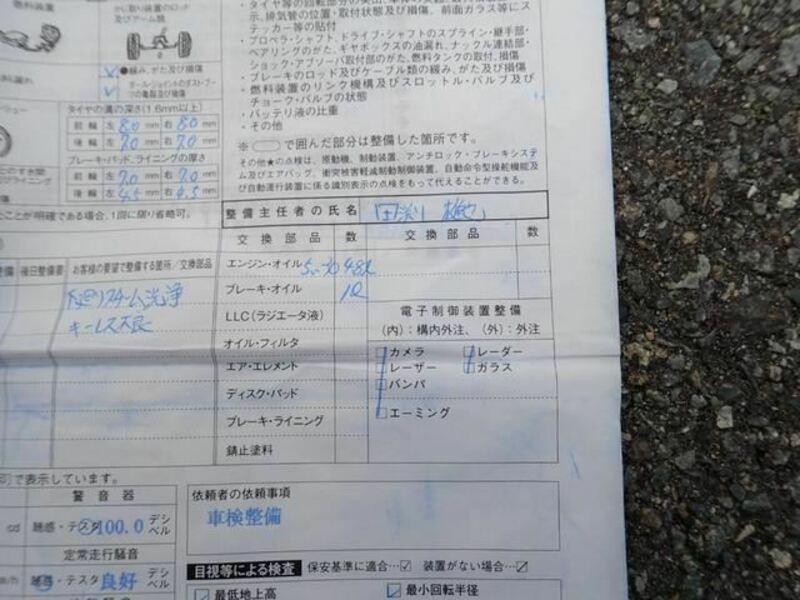 燃料装置
かじ取り装置のロッド
及びアーム類
・タイヤ等の回転部分の突出、
示、排気管の位置・取付状態及び損傷、前面ガラス等にス
テッカー等の貼付
・プロペラ・シャフト、ドライブ・シャフトのスプライン・継手部・
ベアリングのがた、ギヤボックスの油漏れ、ナックル連結部・
ショック・アブソーバ取付部のがた、燃料タンクの取付、損傷、
・ブレーキのロッド及びケーブル類の緩み、がた及び損傷
・燃料装置のリンク機構及びスロットル・バルブ及び
チョーク・バルブの状態
・バッテリ液の比重
・その他
●緩み、がた及び損傷
ボール・ジョイントのダストブーツの亀裂及び損傷
タイヤの溝の深さ(1.6mm以上)
前輪 左 8.0 mm 右 8.0 mm
後輪 左 7.0 mm 右 7.0 mm
ブレーキ・パッド、ライニングの厚さ
前輪 左 7.0 mm 右 7.0 mm
後輪 左 4.5 mm 右 4.5 mm
たことが明確である場合、1回に限り省略可。
※ で囲んだ部分は整備した箇所です。
その他★の点検は、原動機、制動装置、アンチロック・ブレーキシステ
ム及びエアバッグ、衝突被害軽減制動制御装置、自動命令型操舵機能及
び自動運行装置に係る識別表示の点検をもって代えることができる。
整備主任者の氏名
交換部品 数 交換部品 数
エンジン・オイル 5w-30 4.8L
ブレーキ・オイル 1L
LLC(ラジエータ液)
オイル・フィルタ
エア・エレメント
ディスク・パッド
ブレーキ・ライニング
錆止塗料
電子制御装置整備
(内):構内外注、(外):外注
□カメラ □レーダー
□レーザー □ガラス
□バンパ
□エーミング
整備 後日整備要 お客様の要望で整備する箇所/交換部品
下廻りスチーム洗浄
キーレス不良
印)で表示しています。
警音器
cd 聴感・テスタ 100.0 デシベル
定常走行騒音
聴感・テスタ 良好 デシベル
依頼者の依頼事項
車検整備
目視等による検査 保安基準に適合…☑ 装置がない場合…☑
☑ 最低地上高 ☑ 最小回転半径